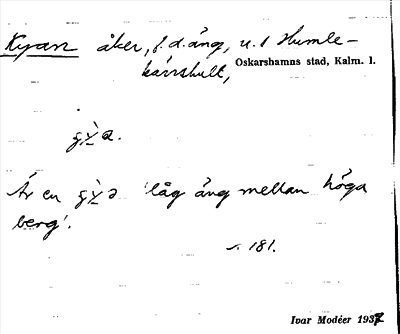 Kyan åker, f.d. äng, u. 1 Humle-
kärrshult, Oskarshamns stad, Kalm. l.
Är en 'låg äng mellan höga
berg'.
s. 181.
Ivar Modéer 1937